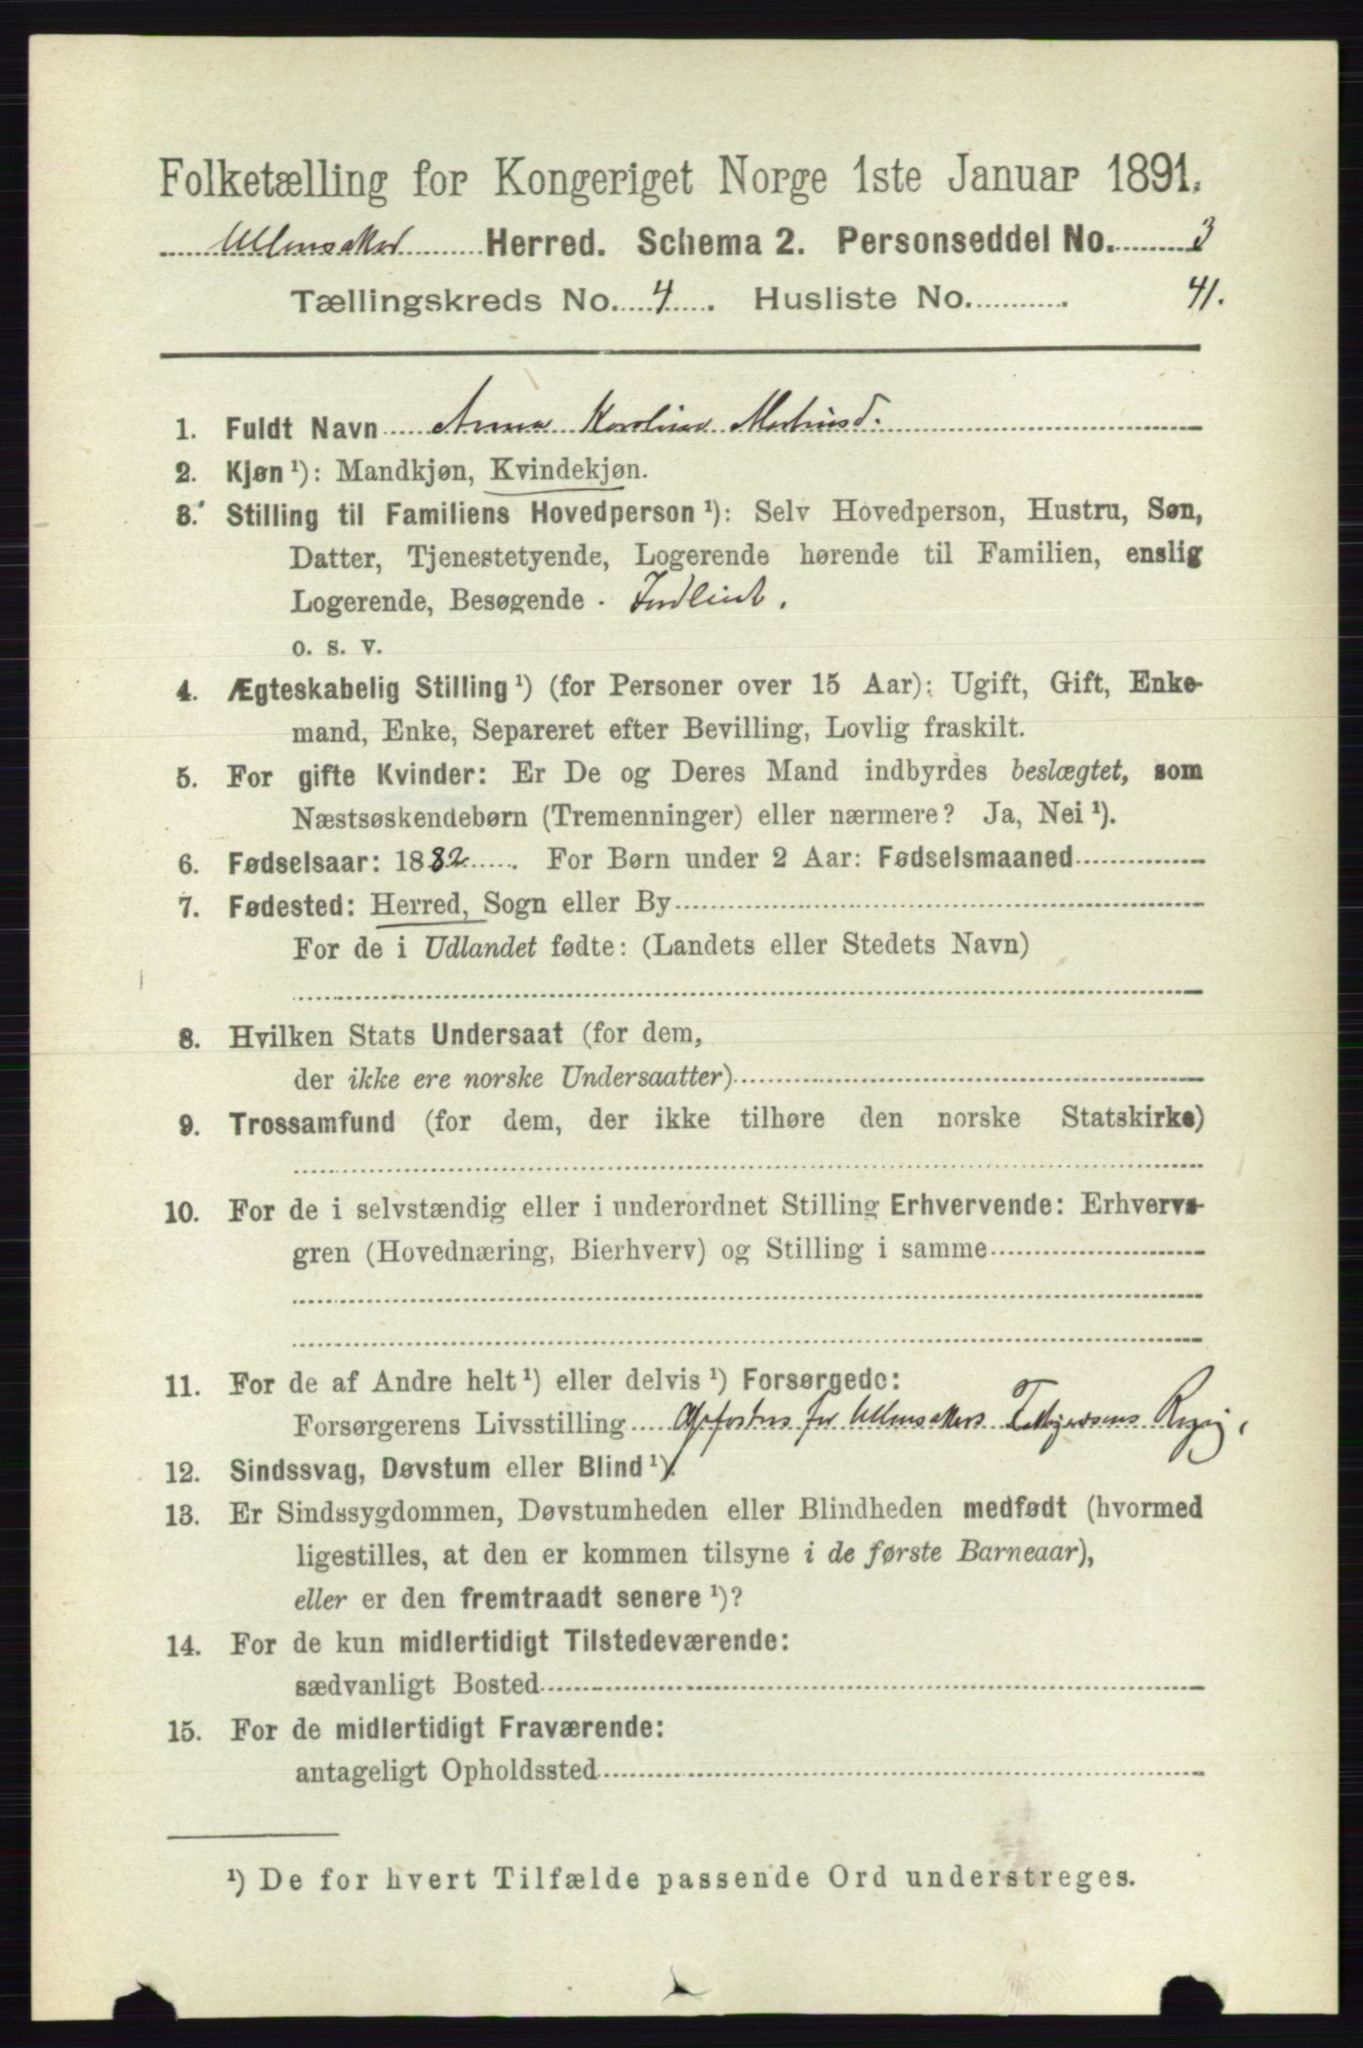 Folketælling for Kongeriget Norge 1ste Januar 1891.
Ullensaker Herred. Schema 2. Personseddel No. 3
Tællingskreds No. 4. Husliste No. 41.
1. Fuldt Navn Anna Karoline Martinsd.
2. Kjøn ¹): Mandkjøn, Kvindekjøn.
3. Stilling til Familiens Hovedperson ¹): Selv Hovedperson, Hustru, Søn,
Datter, Tjenestetyende, Logerende hørende til Familien, enslig
Logerende, Besøgende .
o. s. v.
4. Ægteskabelig Stilling ¹) (for Personer over 15 Aar): Ugift, Gift, Enke-
mand, Enke, Separeret efter Bevilling, Lovlig fraskilt.
5. For gifte Kvinder: Er De og Deres Mand indbyrdes beslægtet, som
Næstsøskendebørn (Tremenninger) eller nærmere? Ja, Nei ¹).
6. Fødselsaar: 1882. For Børn under 2 Aar: Fødselsmaaned
7. Fødested: Herred, Sogn eller By
For de i Udlandet fødte: (Landets eller Stedets Navn)
8. Hvilken Stats Undersaat (for dem,
der ikke ere norske Undersaatter)
9. Trossamfund (for dem, der ikke tilhøre den norske Statskirke)
10. For de i selvstændig eller i underordnet Stilling Erhvervende: Erhvervs-
gren (Hovednæring, Bierhverv) og Stilling i samme
11. For de af Andre helt ¹) eller delvis ¹) Forsørgede:
Forsørgerens Livsstilling Opfostres for Ullensakers
12. Sindssvag, Døvstum eller Blind ¹).
13. Er Sindssygdommen, Døvstumheden eller Blindheden medfødt (hvormed
ligestilles, at den er kommen tilsyne i de første Barneaar),
eller er den fremtraadt senere ¹)?
14. For de kun midlertidigt Tilstedeværende:
sædvanligt Bosted
15. For de midlertidigt Fraværende:
antageligt Opholdssted
¹) De for hvert Tilfælde passende Ord understreges.